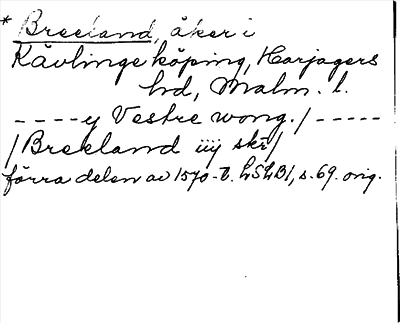 * Breeland, åker i
Kävlinge köping, Harjagers
hd, Malm. l.
----y Vestre wong./-----
/Breeland iiij skr/
förra delen av 1570-t. LSLB1, s. 69. orig.